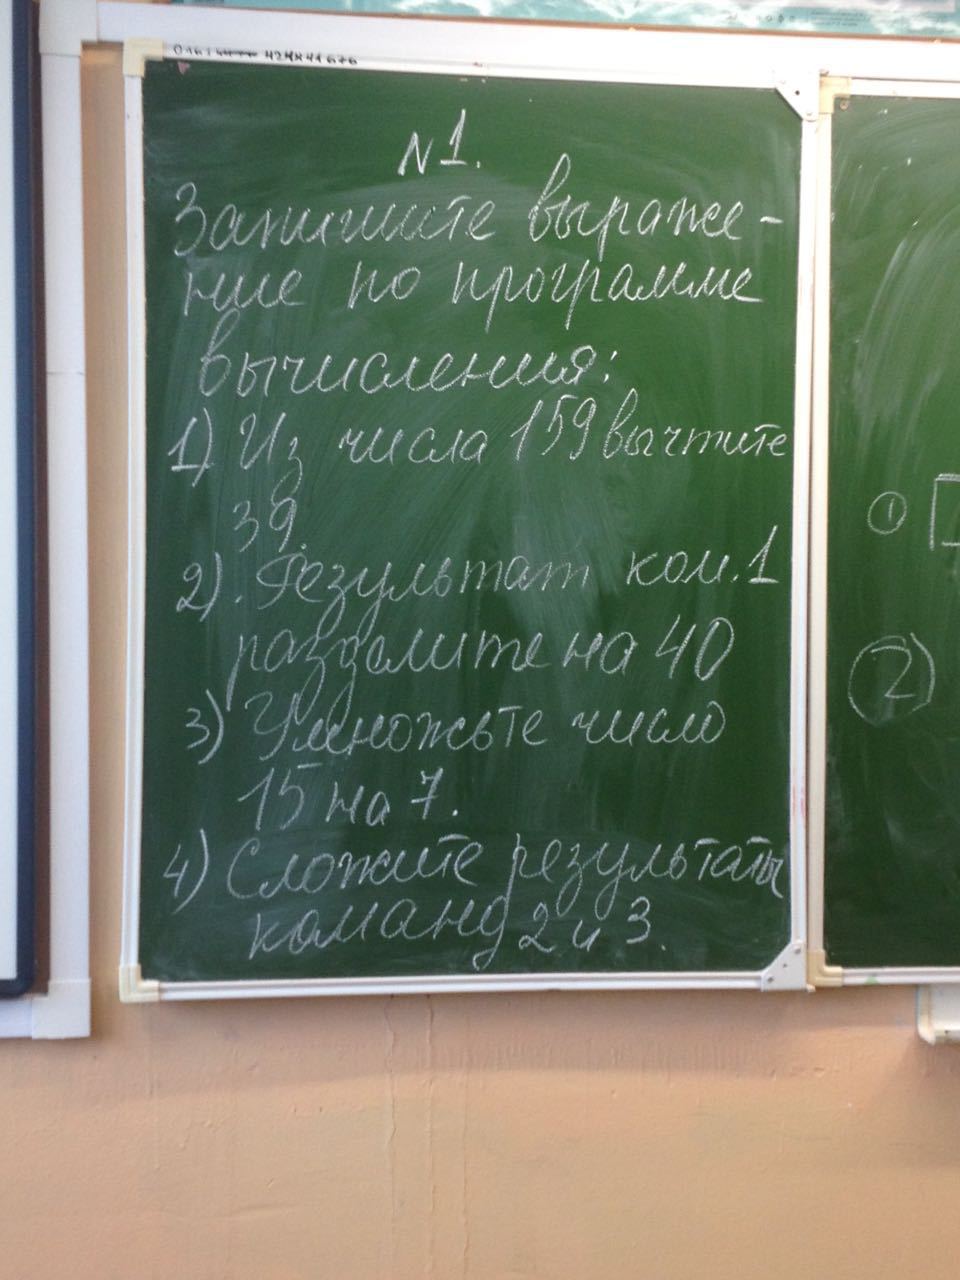 N1.
Запишите выраже-
ние по программе
вычисления:
1) Из числа 159 вычтите
39.
2). Результат ком. 1
разделите на 40
3) Умножьте число
15 на 7.
4) Сложите результаты
команд 2 и 3.
1
2)